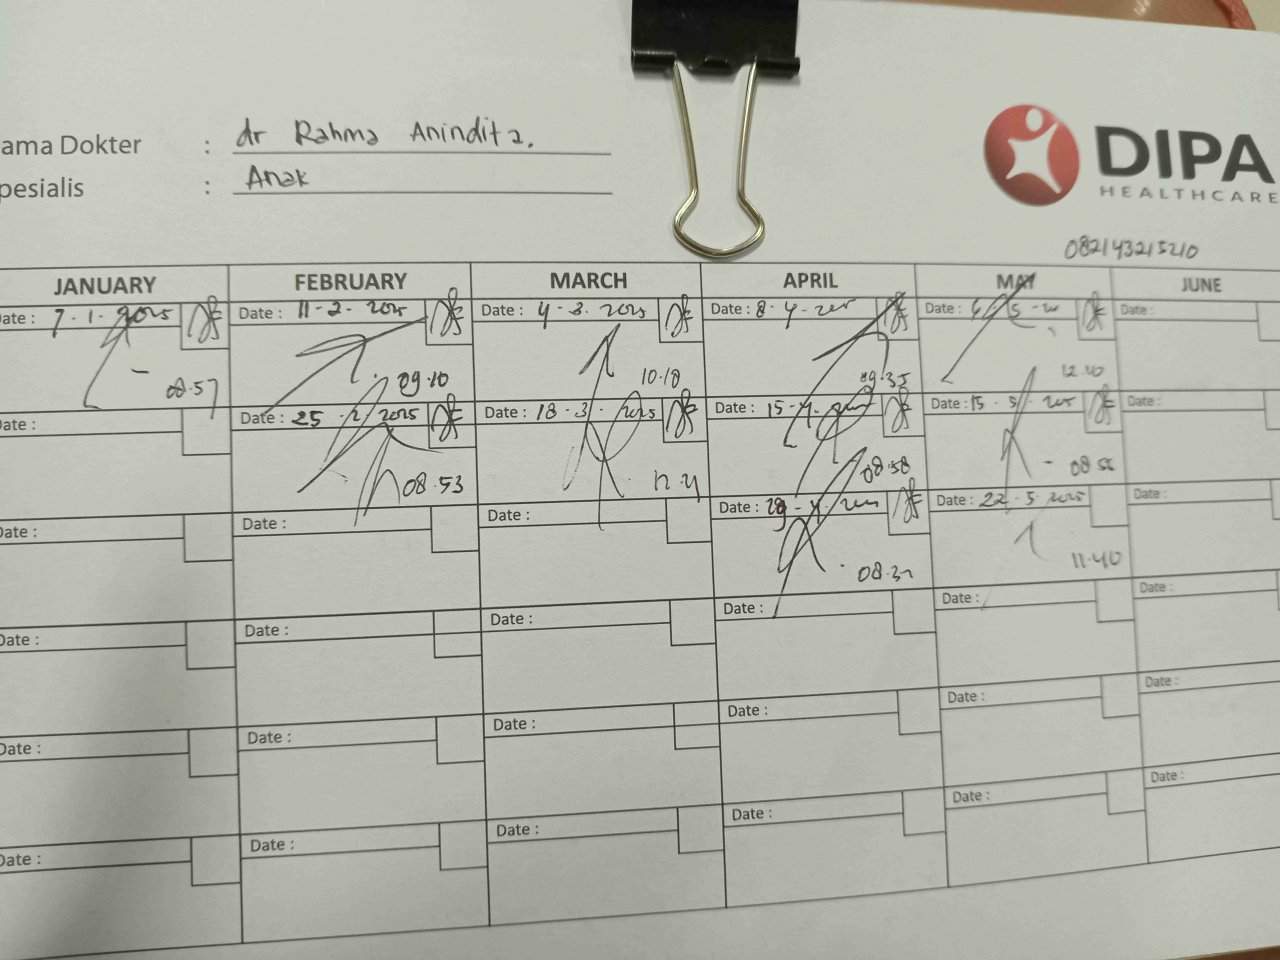 ama Dokter : dr Rahma Anindita.
pesialis : Anak
DIPA
HEALTHCARE
082143215210
JANUARY FEBRUARY MARCH APRIL MAY JUNE
ate : 7-1-2025 Date : 11-2-2025 Date : 4-3-2025 Date : 8-4- Date : Date :
08.57 09.10 10.18 09.35 12.40
ate : Date : 25-2-2025 Date : 18-3-2025 Date : 15-4- Date : 15-5- Date :
08.53 08.58
ate : Date : Date : Date : 29-4- Date : 22-5-2025 Date :
11.40
Date : Date : Date : Date : Date : Date :
Date : Date : Date : Date : Date : Date :
Date : Date : Date : Date : Date : Date :